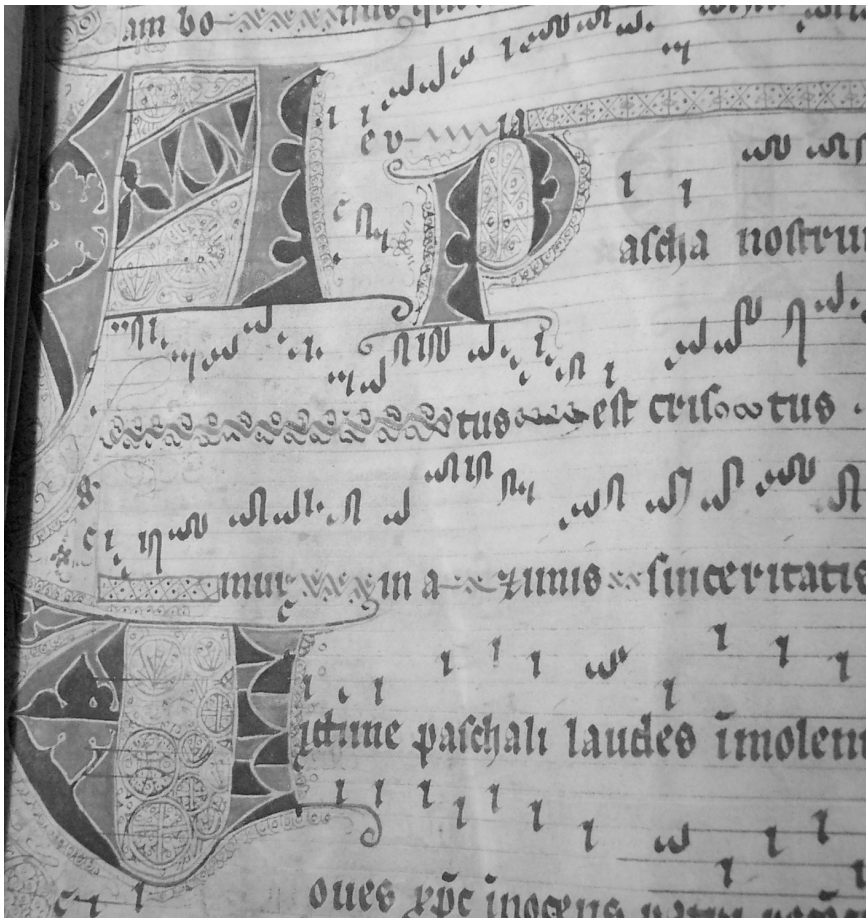 am bo nus
A e v ia
P ascha nostrum
tus est cris tus
mur in a zimis sinceritatis
Victime paschali laudes īmolent
oues xp̄c īnocens